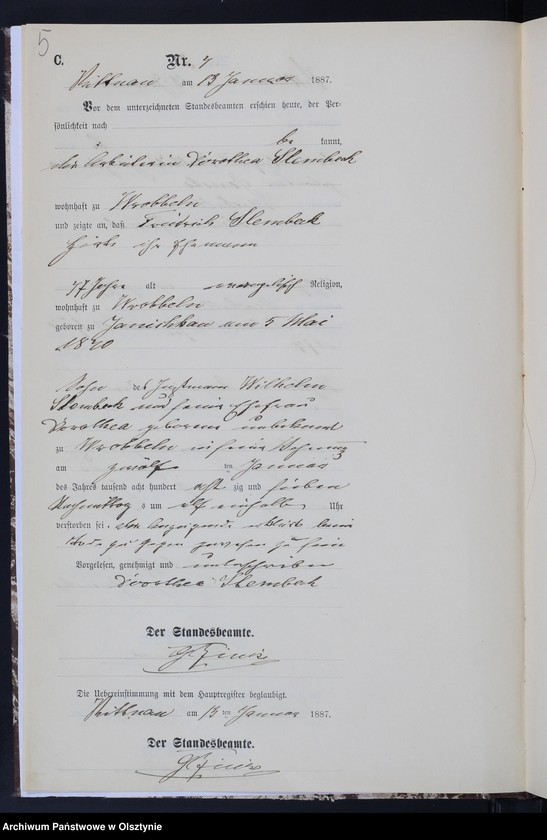 5
C. Nr. 4
am 13 Januar 1887.
Vor dem unterzeichneten Standesbeamten erschien heute, der Per-
sönlichkeit nach
be kannt,
die Arbeiterin Dorothea Slembeck
wohnhaft zu Wrobbeln
und zeigte an, daß Friedrich Slembeck
ihr Ehemann
47 Jahre alt evangelisch Religion,
wohnhaft zu Wrobbeln
geboren zu Janischkau am 5 Mai
1840
Sohn des Wilhelm
Slembeck und seine Ehefrau
Dorothea geborene unbekannt
zu Wrobbeln in seine Wohnung
am zwölf ten Januar
des Jahres tausend acht hundert acht zig und sieben
Nachmittag s um elf einhalb Uhr
verstorben sei. die
Tode zu gegen gewesen zu sein
Vorgelesen, genehmigt und unterschrieben
Dorothea Slembeck
Der Standesbeamte.
Die Uebereinstimmung mit dem Hauptregister beglaubigt.
am 13 ten Januar 1887.
Der Standesbeamte.
Archiwum Państwowe w Olsztynie